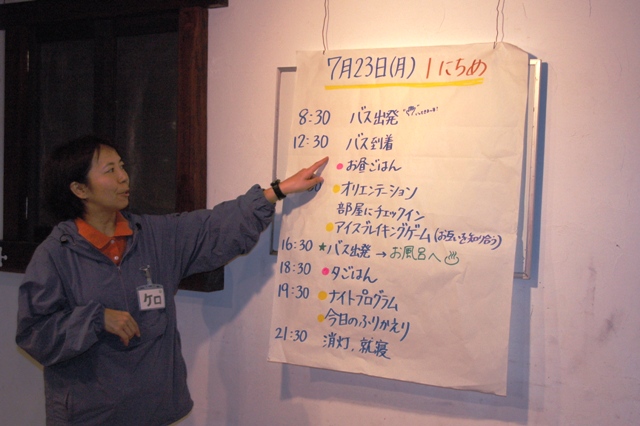 7月23日(月) 1にちめ
8:30 バス出発
12:30 バス到着
お昼ごはん
オリエンテーション
部屋にチェックイン
アイスブレイキングゲーム(お互いを知り合う)
16:30 ★バス出発→お風呂へ♨
18:30 夕ごはん
19:30 ナイトプログラム
今日のふりかえり
21:30 消灯、就寝
ケロ